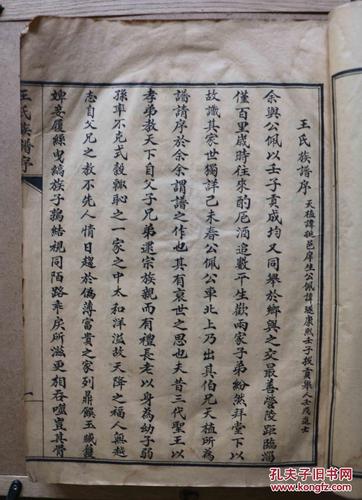 王氏族譜序 天植諱 邑庠生公佩諱遂康熙壬子拔貢舉人壬戌進士
余與公佩以壬子貢成均又同舉於鄉與之交最善營陵距臨淄
僅百里歲時往來酌卮酒追數平生歡兩家子弟紛然拜堂下以
故識其家世獨詳己未春公佩公車北上乃出其伯兄天植所為
譜請序於余余謂譜之作也其有衰世之思也夫昔三代聖王以
孝弟教天下自父子兄弟還宗族親而有禮長老以身為幼子弱
孫率不克式穀輙恥之一家之中太和洋溢故天降之福人無越
志自父兄之教不先人情日趨於偽薄富貴之家列鼎饌玉臧獲
婢妾履絲曳縞族子鶉結視同陌路乖戾所滋更相吞噬豈其骨
王氏族譜序
一
孔夫子旧书网